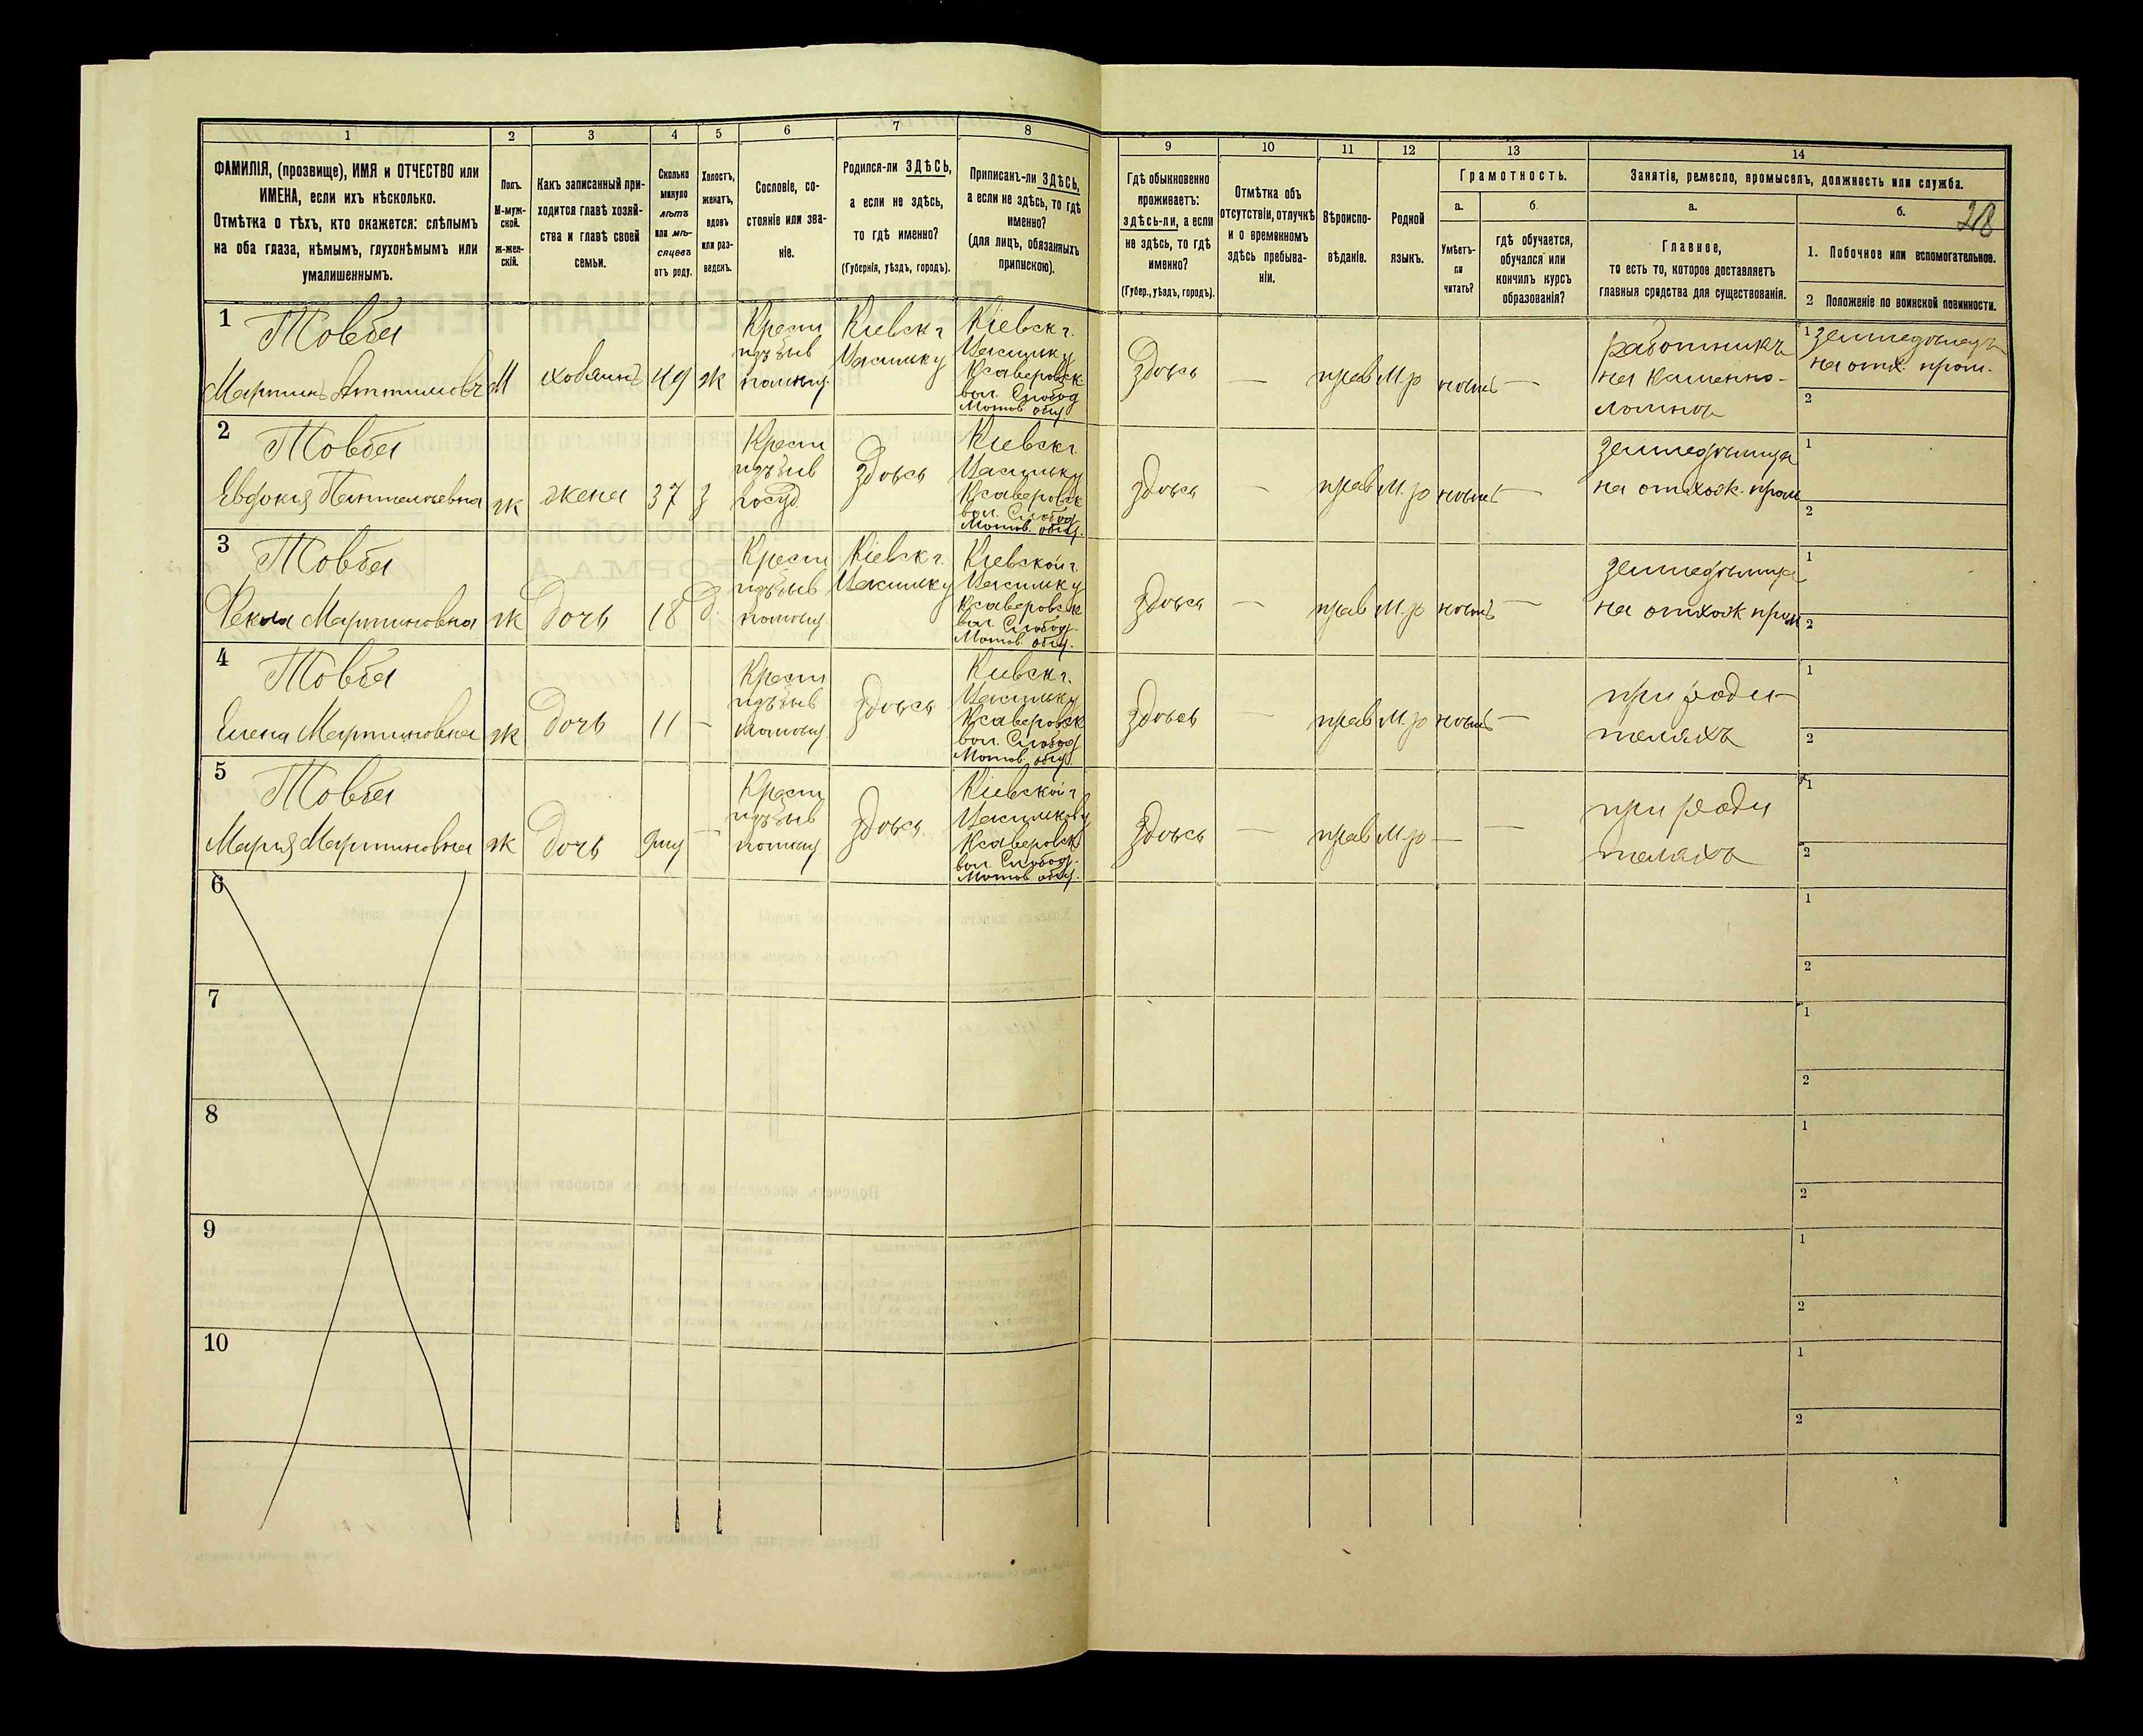 1 2 3 4 5 6 7 8 9 10 11 12 13 14
ФАМИЛІЯ, (прозвище), ИМЯ и ОТЧЕСТВО или
ИМЕНА, если ихъ нѣсколько.
Отмѣтка о тѣхъ, кто окажется: слѣпымъ
на оба глаза, нѣмымъ, глухонѣмымъ или
умалишеннымъ.
Полъ.
М-муж-
ской.
ж-жен-
скій.
Какъ записанный при-
ходится главѣ хозяй-
ства и главѣ своей
семьи.
Сколько
минуло
лѣтъ
или мѣ-
сяцевъ
отъ роду.
Холостъ,
женатъ,
вдовъ
или раз-
веденъ.
Сословіе, со-
стояніе или зва-
ніе.
Родился-ли ЗДѢСЬ,
а если не здѣсь,
то гдѣ именно?
(Губернія, уѣздъ, городъ).
Приписанъ-ли ЗДѢСЬ,
а если не здѣсь, то гдѣ
именно?
(для лицъ, обязанныхъ
припискою).
Гдѣ обыкновенно
проживаетъ:
здѣсь-ли, а если
не здѣсь, то гдѣ
именно?
(Губер., уѣздъ, городъ).
Отмѣтка объ
отсутствіи, отлучкѣ
и о временномъ
здѣсь пребыва-
ніи.
Вѣроиспо-
вѣданіе.
Родной
языкъ.
Грамотность.
а.
Умѣетъ-
ли
читать?
б.
гдѣ обучается,
обучался или
кончилъ курсъ
образованія?
Занятіе, ремесло, промыселъ, должность или служба.
а.
Главное,
то есть то, которое доставляетъ
главныя средства для существованія.
б.
28
1. Побочное или вспомогательное.
2 Положеніе по воинской повинности.
1
Товбa
Мартинъ М хозяинъ 49 ж
Крест
изъ быв
помѣщ.
Кіевск г
Кіевск г.
Ксаверовск
вол. Слобод
Мотов общ.
Здѣсь — прав М.р нѣтъ —
работникъ
на каменно-
ломнѣ
1 земледѣлецъ
на отх. пром.
2
2
Товба
Евдокія Пантелѣевна ж жена 37 з
Крест
изъ быв
госуд
здѣсь
Кіевск г.
Ксаверовск
вол. Слобод
Мотов. общ.
здѣсь — прав М.р нѣтъ —
земледѣлица
на отхож. пром
1
2
3
Товба
Фекла Мартиновна ж дочь 18 д.
Крест
изъ быв
помѣщ
Кіевск г.
Кіевской г.
Ксаверовск
вол. Слобод.
Мотов общ.
здѣсь — прав М.р нѣтъ —
земледѣлица
на отхож пром
1
2
4
Товба
Елена Мартиновна ж дочь 11 —
Крест
изъ быв
помѣщ
здѣсь
Кіевск г.
Ксаверовск
вол. Слобод
Мотов. общ.
здѣсь — прав М.р нѣтъ —
при роди-
теляхъ
1
2
5
Товба
Марія Мартиновна ж дочь —
Крест
изъ быв
помѣщ
здѣсь
Кіевской г
Ксаверовск
вол. Слобод.
Мотов общ.
здѣсь — прав М.р — —
при роди
теляхъ
1
2
6
1
2
7
1
2
8
1
2
9
1
2
10
1
2